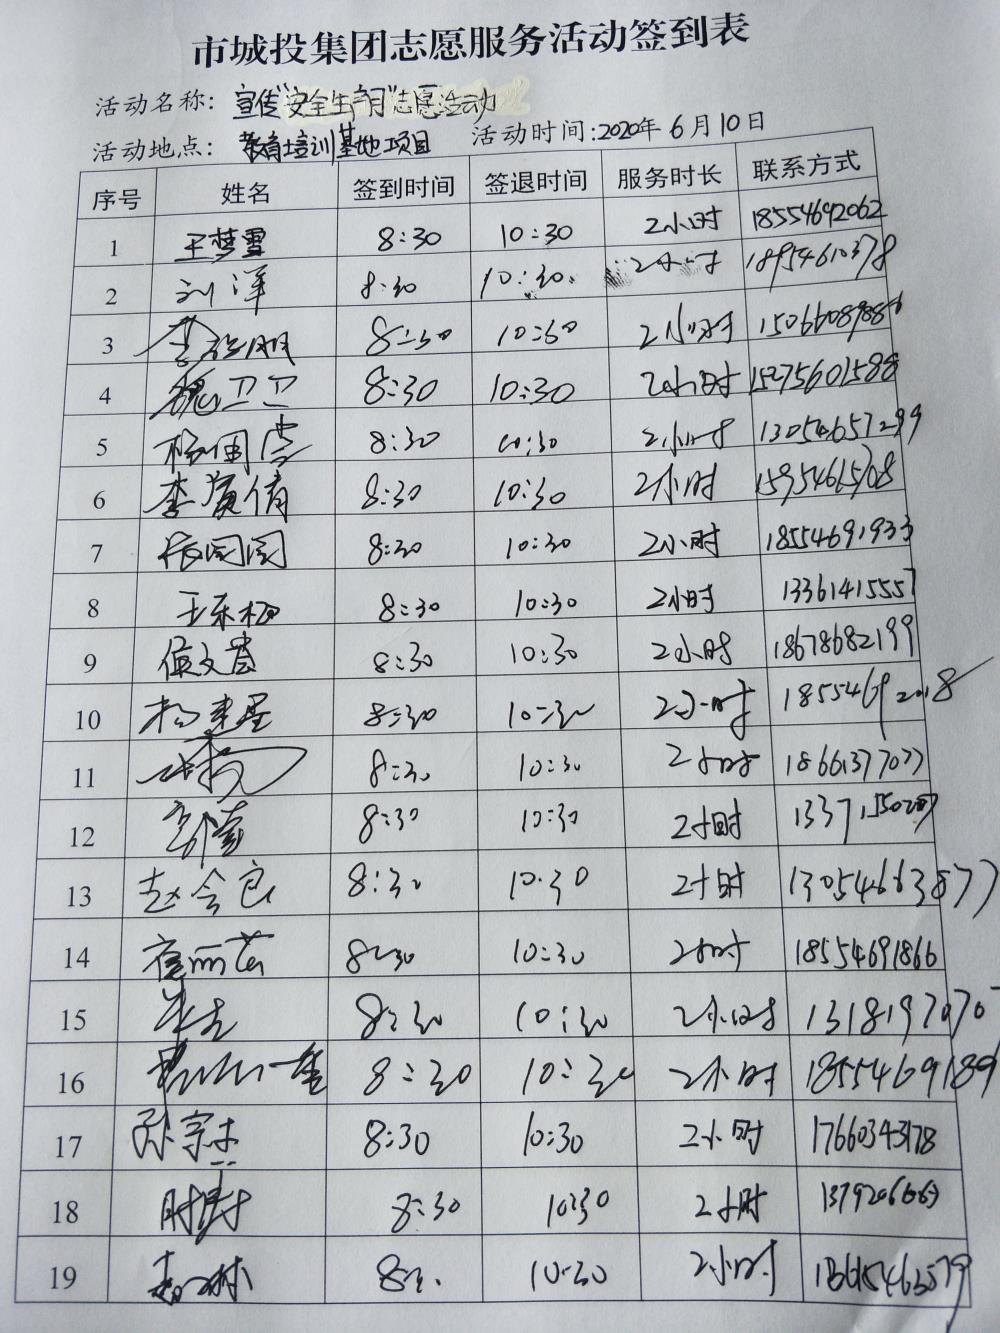 市城投集团志愿服务活动签到表
活动名称：宣传"安全生产月"志愿活动
活动地点：教育培训基地项目 活动时间：2020年6月10日
序号 姓名 签到时间 签退时间 服务时长 联系方式
1 王梦雪 8:30 10:30 2小时 18554692062
2 刘洋 8:30 10:30 2小时 18954610378
3 8:30 10:30 2小时
4 魏卫卫 8:30 10:30 2小时 15275601588
5 杨国 8:30 10:30 2小时 13054657299
6 李广倩 8:30 10:30 2小时 15954615708
7 张园园 8:30 10:30 2小时 18554691933
8 王乐 8:30 10:30 2小时 13361415557
9 文 8:30 10:30 2小时 18678682199
10 杨 8:30 10:30 2小时 18554692018
11 8:30 10:30 2小时 18661377077
12 8:30 10:30 2小时
13 赵会良 8:30 10:30 2小时 13054663877
14 崔丽 8:30 10:30 2小时 18554691866
15 8:30 10:30 2小时
16 8:30 10:30 2小时 18554691896
17 孙宗 8:30 10:30 2小时 17660343178
18 时 8:30 10:30 2小时
19 8:30 10:30 2小时